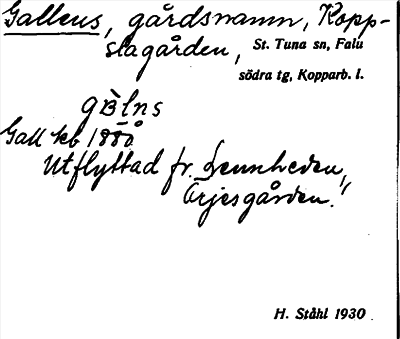 Galleus, gårdsnamn, Kopp-
slagården, St. Tuna sn, Falu
södra tg, Kopparb. l.
Gall kb 1880
Utflyttad fr. Lennheden,
Örjesgården."
H. Ståhl 1930